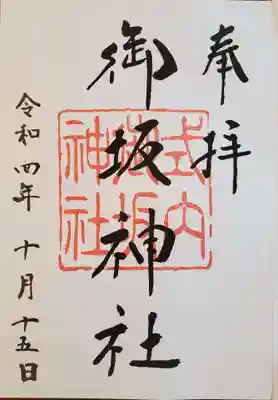 奉拝
御坂神社
式内
御坂
神社
令和四年 十月 十五日